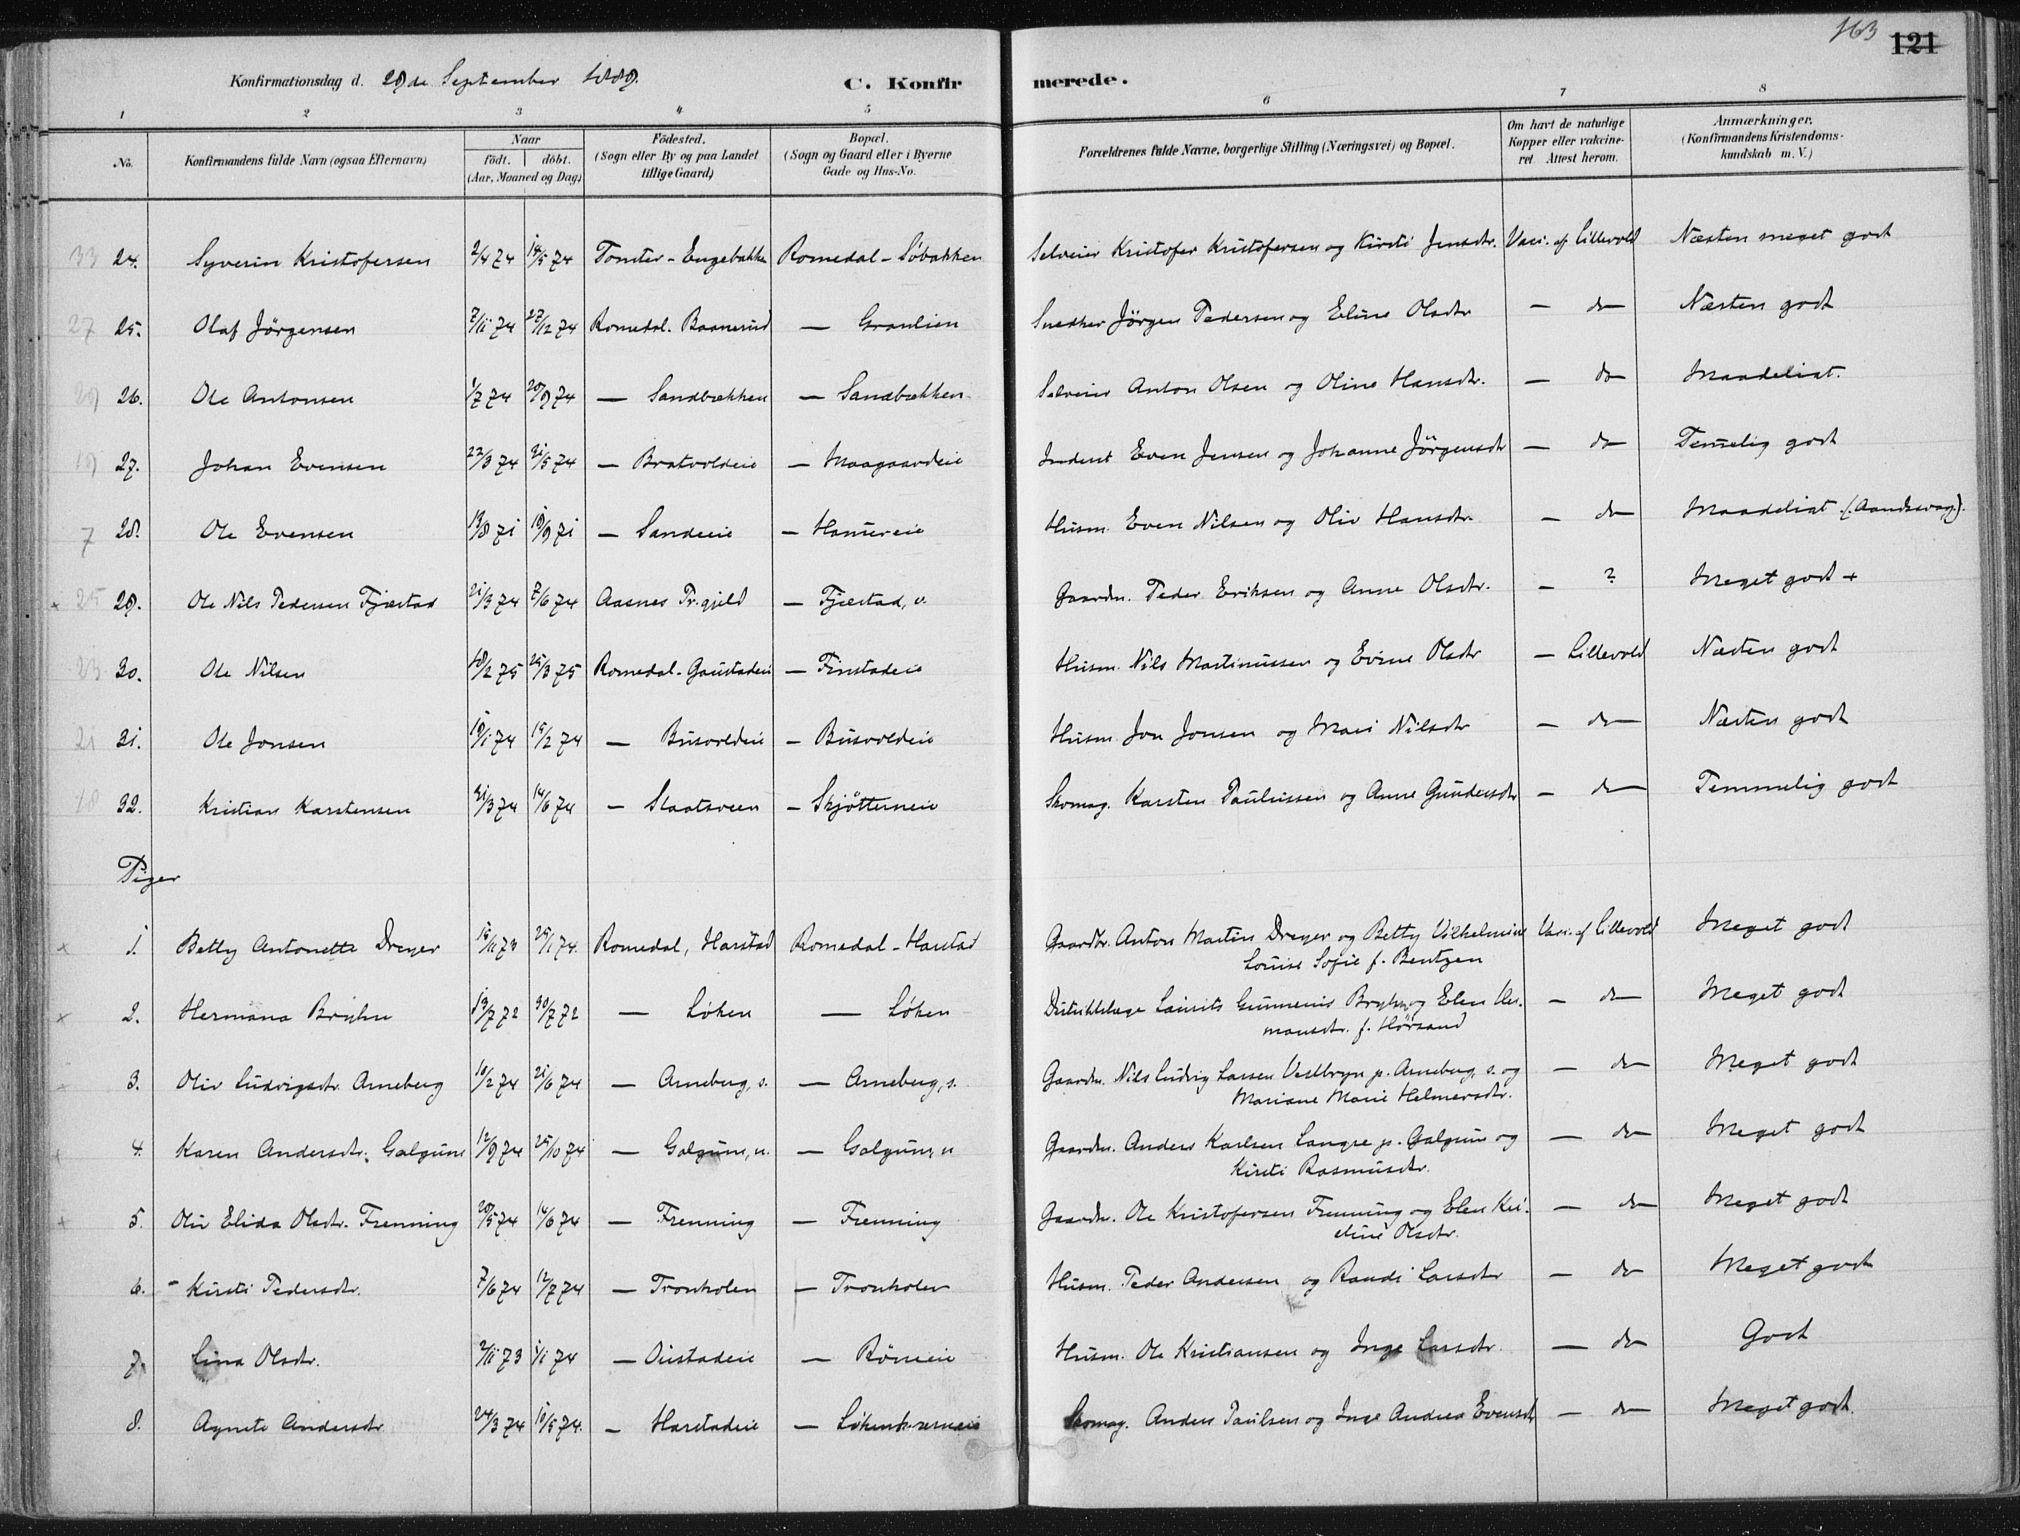 163 121
Konfirmationsdag d. 29de September 1889. C. Konfirmerede.
1 2 3 4 5 6 7 8
No. Konfirmandens fulde Navn (ogsaa Efternavn) Naar født. døbt. (Aar, Maaned og Dag) Födested. (Sogn eller By og paa Landet tillige Gaard) Bopæl. (Sogn og Gaard eller i Byerne Gade og Hus-No. Forældrenes fulde Navne, borgerlige Stilling (Næringsvei) og Bopæl. Om havt de naturlige Kopper eller vakcineret. Attest herom. Anmærkninger. (Konfirmandens Kristendomskundskab m. V.)
33 24. Syverin Kristofersen 2/4 74 14/5 74 Tomter - Engebakken Romedal - Löbakken Selveier Kristofer Kristofersen og Kirsti Jensdtr. Vacc. af Lillevold Næsten meget godt
27 25. Olaf Jörgensen 7/11 74 27/12 74 Romedal. Baanerud — Granlien Snedker Jörgen Pedersen og Eline Olsdtr — do Næsten godt
29 26. Ole Antonsen 1/7 74 20/9 74 — Sandbækken — Sandbækken Selveier Anton Olsen og Oline Hansdtr. — do Maadeligt.
19 27. Johan Evensen 22/3 74 21/5 74 — Bratvoldeie — Maagaardeie Inderst Even Jensen og Johanne Jörgensdtr — do Temelig godt
7 28. Ole Evensen 13/8 71 19/9 71 — Sandeie — Hamereie Husm. Even Nilsen og Oliv Hansdtr. — do Maadeligt (Aandssvag).
+ 25 29. Ole Nils Pedersen Fjæstad 21/3 74 7/6 74 Aasnes Pr.gjeld — Fjæstad, v. Gaardm. Peder Eriksen og Anne Olsdtr. — ? Meget godt +
23 30. Ole Nilsen 18/2 75 25/3 75 Romedal - Gaustadeie — Finstadeie Husm. Nils Martinussen og Evine Olsdtr — Lillevold Næsten godt
21 31. Ole Jonsen 19/1 74 15/2 74 — Busvoldeie — Busvoldeie Husm Jon Jonsen og Mari Nilsdtr — do Næsten godt
18 32. Kristian Karstensen 31/3 74 14/6 74 — Staatsveen — Skjøtterneie Skomag. Karsten Paulussen og Anne Gundersdtr — do Temmelig godt
Piger
+ 1. Betty Antonette Dreyer 15/11 73 25/1 74. Romedal, Harstad Romedal - Harstad Gaardbr. Anton Martin Dreyer og Betty Vilhelmine Vacc. af Lillevold Meget godt
Louise Sofie f. Bentzen
+ 2. Hermana Bryhn 19/7 72 30/7 72 — Løken — Løken Distriktslæge Laurits Gummerus Bryhn og Elen Her- — do Meget godt
mansdtr. f. Hørsand
3. Oliv Ludvigsdtr. Arneberg 10/2 74 21/6 74 — Arneberg, s. — Arneberg, s. Gaardm. Nils Ludvig Larsen Vestbryn p. Arneberg, s. og — do Meget godt
Mariane Marie Helmersdtr.
4. Karen Andersdtr. Galgum 12/9 74 25/10 74 — Galgum, n. — Galgum, n Gaardm. Anders Karlsen Langre p. Galgum og — do Meget godt
Kirsti Rasmusdtr.
+ 5. Oliv Elida Olsdtr. Frenning 20/5 74 14/6 74 — Frenning — Frenning Gaardm. Ole Kristofersen Frenning og Elen Kri- — do Meget godt
stine Olsdtr.
6. Kirsti Pedersdtr. 7/6 74 12/7 74 — Tronholen — Tronholen Husm. Peder Andersen og Randi Larsdtr — do Meget godt
7. Lina Olsdtr. 2/11 73 1/1 74 — Oustadeie — Röneie Husm. Ole Kristiansen og Inge Larsdtr. — do Godt
8. Agnete Andersdtr 24/3 74 10/5 74. — Harstadeie — Løkenkværneie Skomag. Anders Paulsen og Inge Andrea Evensdtr — do Meget godt